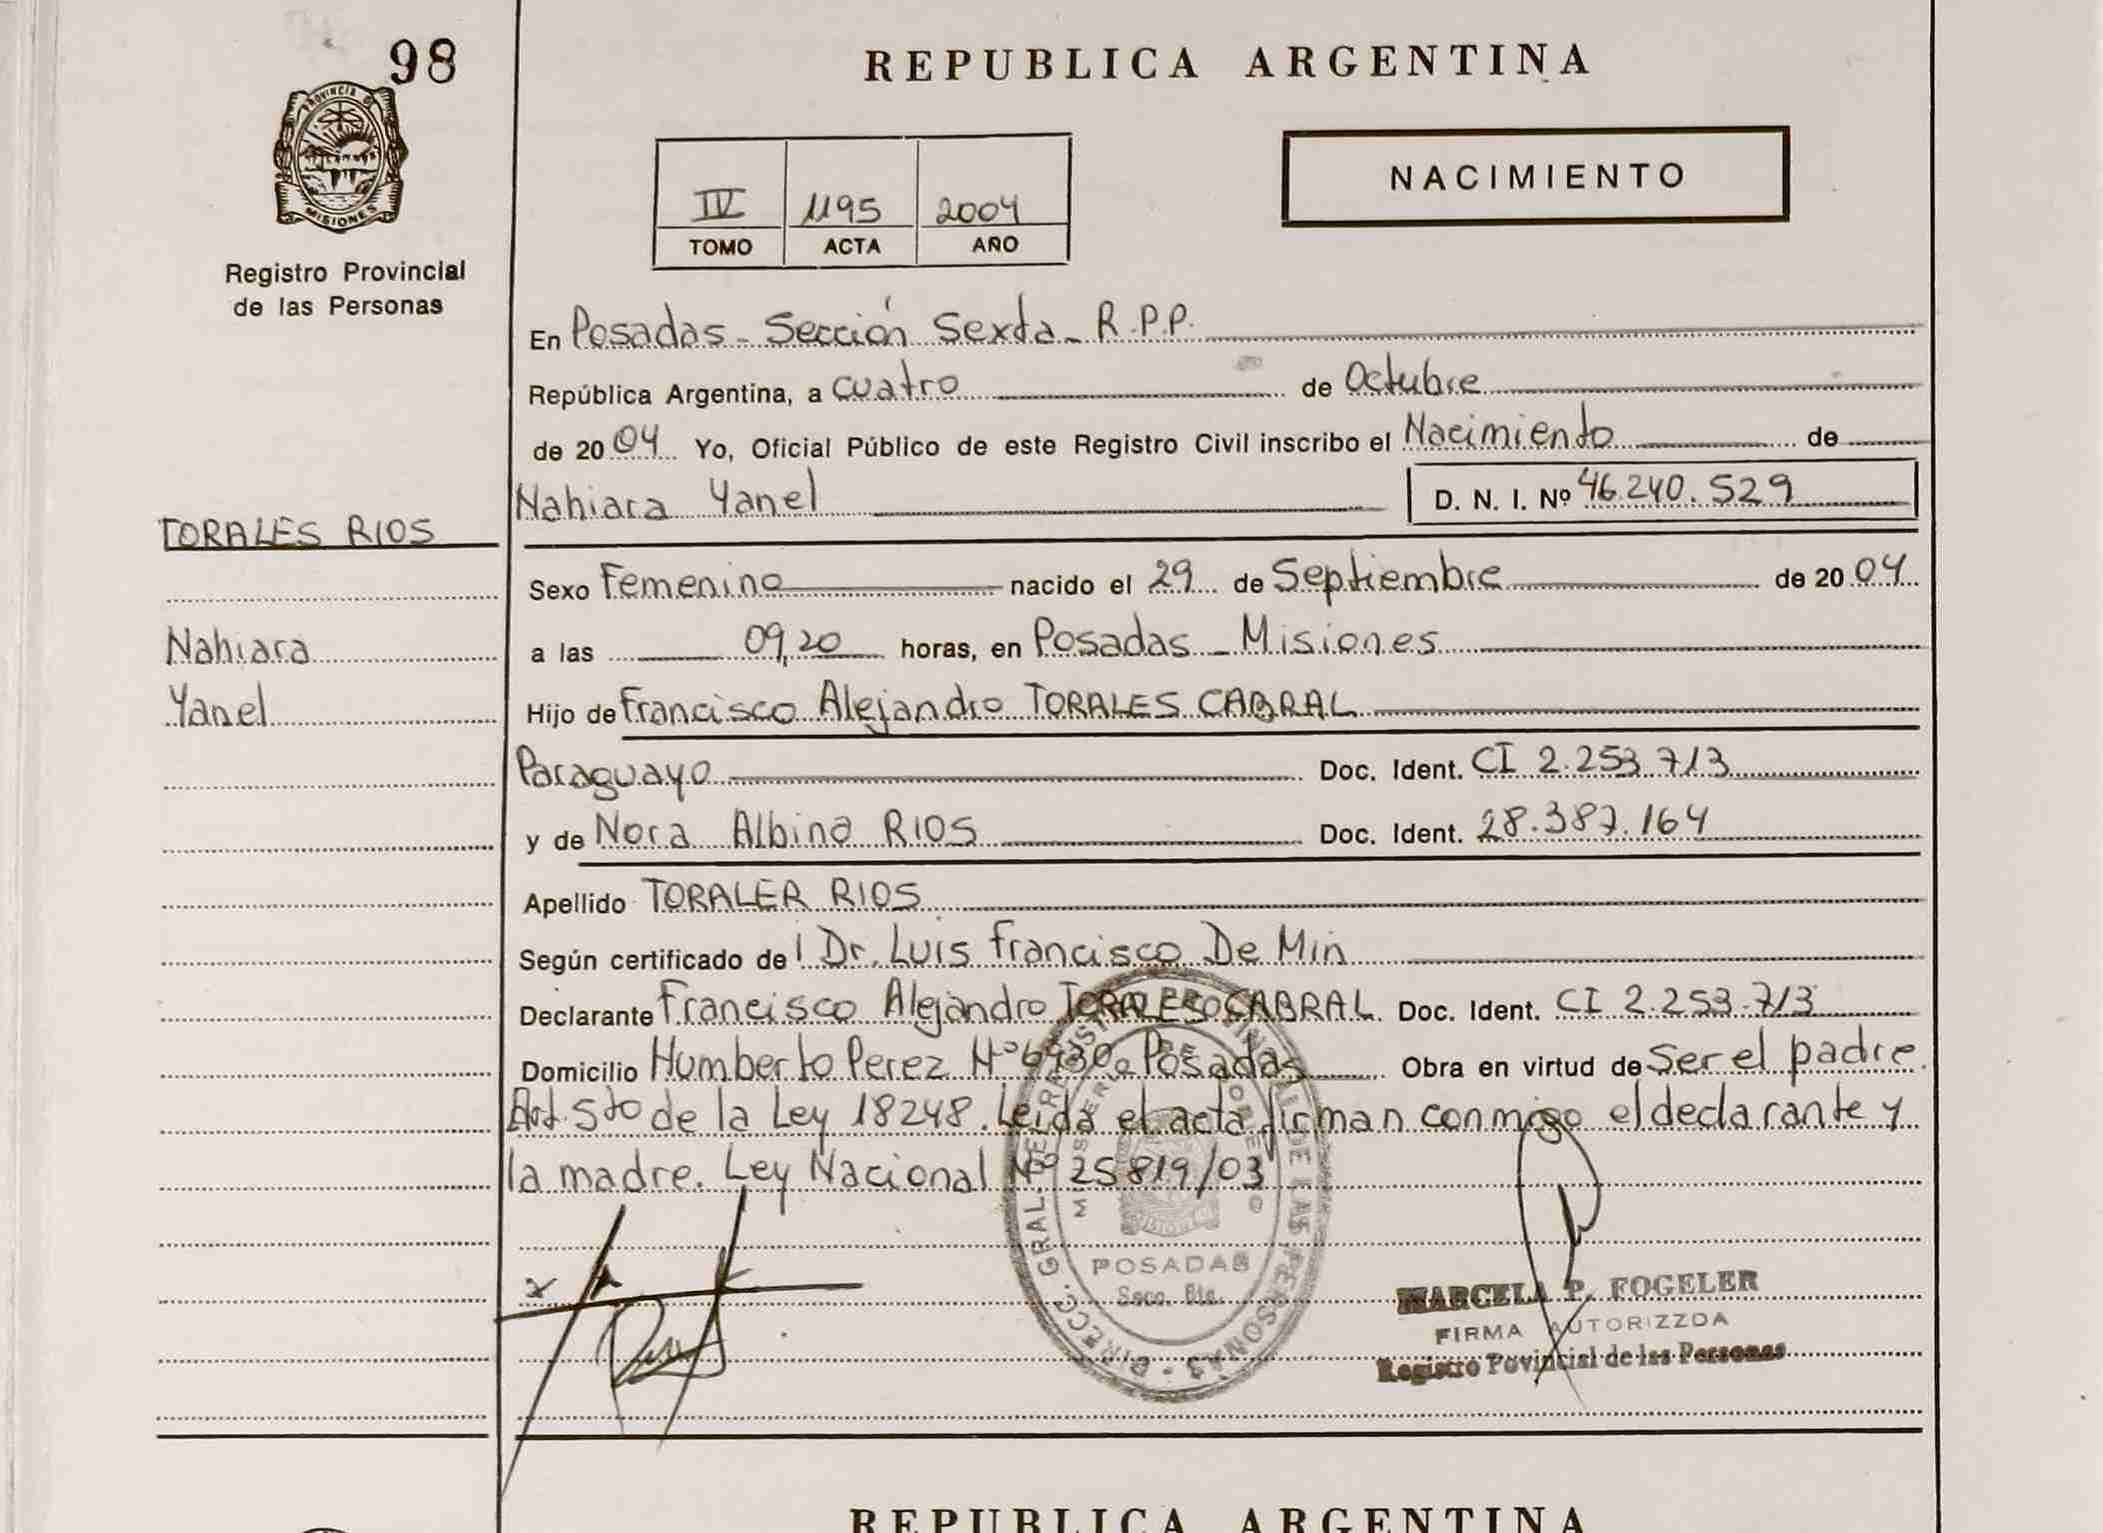 98
PROVINCIA DE
MISIONES
Registro Provincial
de las Personas
REPUBLICA ARGENTINA
IV 1195 2004
TOMO ACTA AÑO
NACIMIENTO
En Posadas - Sección Sexta - R.P.P.
República Argentina, a cuatro de Octubre
de 2004 Yo, Oficial Público de este Registro Civil inscribo el Nacimiento de
Nahiara Yanel D. N. I. Nº 46.240.529
TORALES RIOS
Nahiara
Yanel
Sexo Femenino nacido el 29 de Septiembre de 2004
a las 09,20 horas, en Posadas - Misiones
Hijo de Francisco Alejandro TORALES CABRAL
Paraguayo Doc. Ident. CI 2.253.713
y de Nora Albina RIOS Doc. Ident. 28.387.164
Apellido TORALER RIOS
Según certificado de l Dr. Luis Francisco De Min
Declarante Francisco Alejandro TORALES CABRAL Doc. Ident. CI 2.253.713
Domicilio Humberto Perez Nº 6930 - Posadas Obra en virtud de Ser el padre
Art. 5to de la Ley 18248. Leida el acta firman conmigo el declarante y
la madre. Ley Nacional Nº 25819/03
POSADAS
MARCELA P. FOGELER
FIRMA AUTORIZZDA
Registro Povincial de las Personas
REPUBLICA ARGENTINA